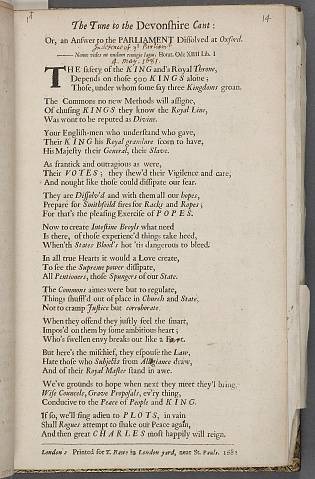 14
The Tune to the Devonshire Cant:
Or, an Answer to the PARLIAMENT Dissolved at Oxford.
in defence of ye Parliamt
—— Nonne vides ut nudum remigio latus. Horat. Ode XIIII Lib. I
4. May. 1681.
THE safety of the KING and's Royal Throne,
Depends on those 500 KINGS alone;
Those, under whom some say three Kingdoms groan.
The Commons no new Methods will assigne,
Of chusing KINGS they know the Royal Line,
Was wont to be reputed as Divine.
Your English-men who understand who gave,
Their KING his Royal grandure scorn to have,
His Majesty their General, their Slave.
As frantick and outragious as were,
Their VOTES; they shew'd their Vigilence and care,
And nought like those could dissipate our fear.
They are Dissolv'd and with them all our hopes,
Prepare for Smithfield fires for Racks and Ropes;
For that's the pleasing Exercise of POPES.
Now to create Intestine Broyls what need
Is there, of those experienc'd things take heed,
When'th States Blood's hot 'tis dangerous to bleed.
In all true Hearts it would a Love create,
To see the Supreme power dissipate,
All Pentioners, those Spungers of our State.
The Commons aimes were but to regulate,
Things thuff'd out of place in Church and State,
Not to cramp Justice but corroborate.
When they offend they justly feel the smart,
Impos'd on them by some ambitious heart;
Who's swellen envy breaks out like a Fart.
But here's the mischief, they espouse the Law,
Hate those who Subjects from Allegiance draw,
And of their Royal Master stand in awe.
We've grounds to hope when next they meet they'l bring,
Wise Councels, Grave Proposals, ev'ry thing,
Conducive to the Peace of People and KING.
If so, we'll sing adieu to PLOTS, in vain
Shall Rogues attempt to shake our Peace again,
And then great CHARLES most happily will reign.
London: Printed for T. Rawe in London yard, near St. Pauls. 1681